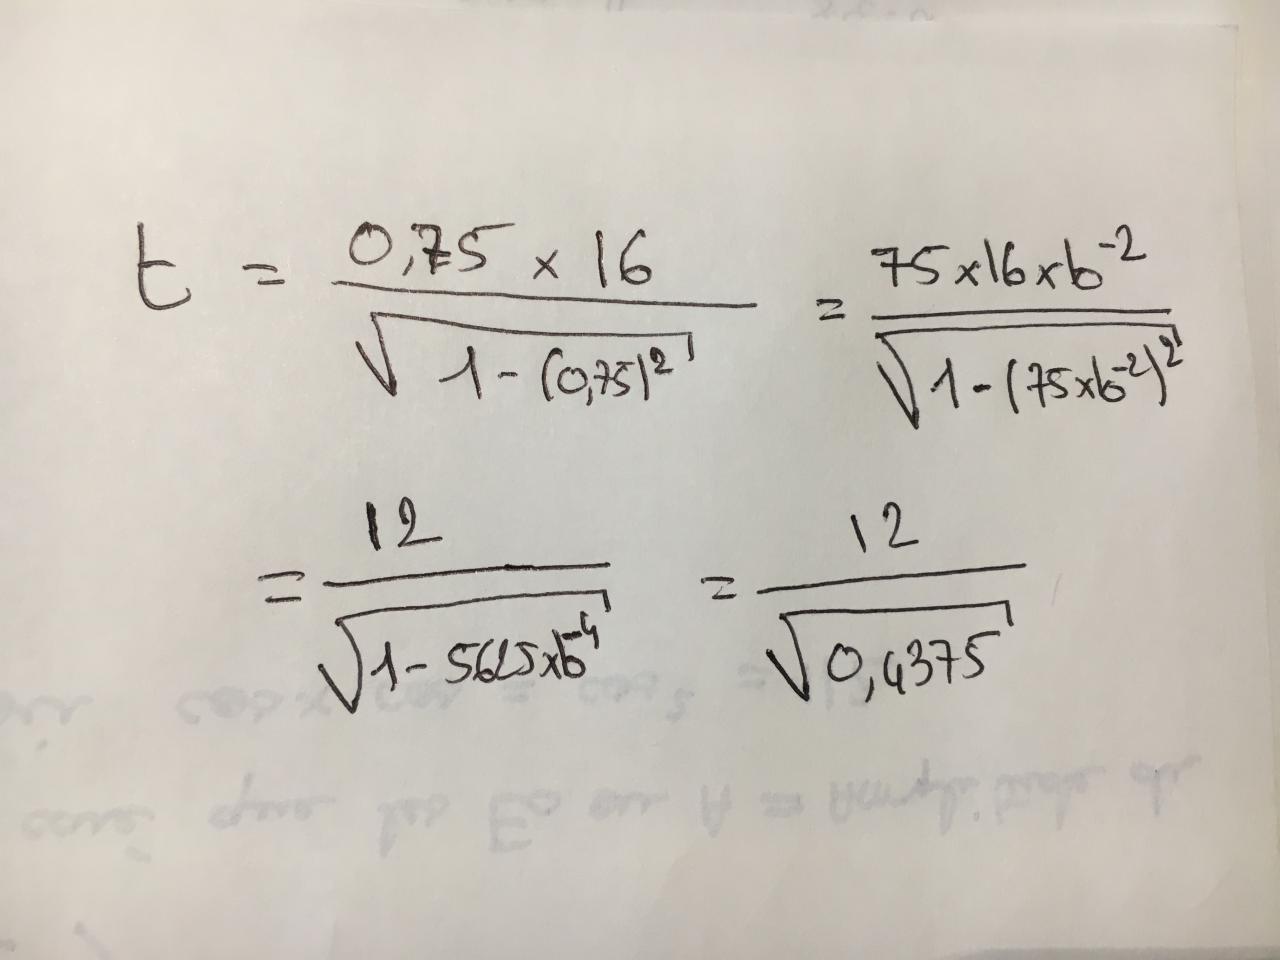 t = \frac{0,75 × 16}{\sqrt{1-(0,75)^2}} = \frac{75×16×10^{-2}}{\sqrt{1-(75×10^{-2})^2}}
= \frac{12}{\sqrt{1-5625×10^{-4}}} = \frac{12}{\sqrt{0,4375}}